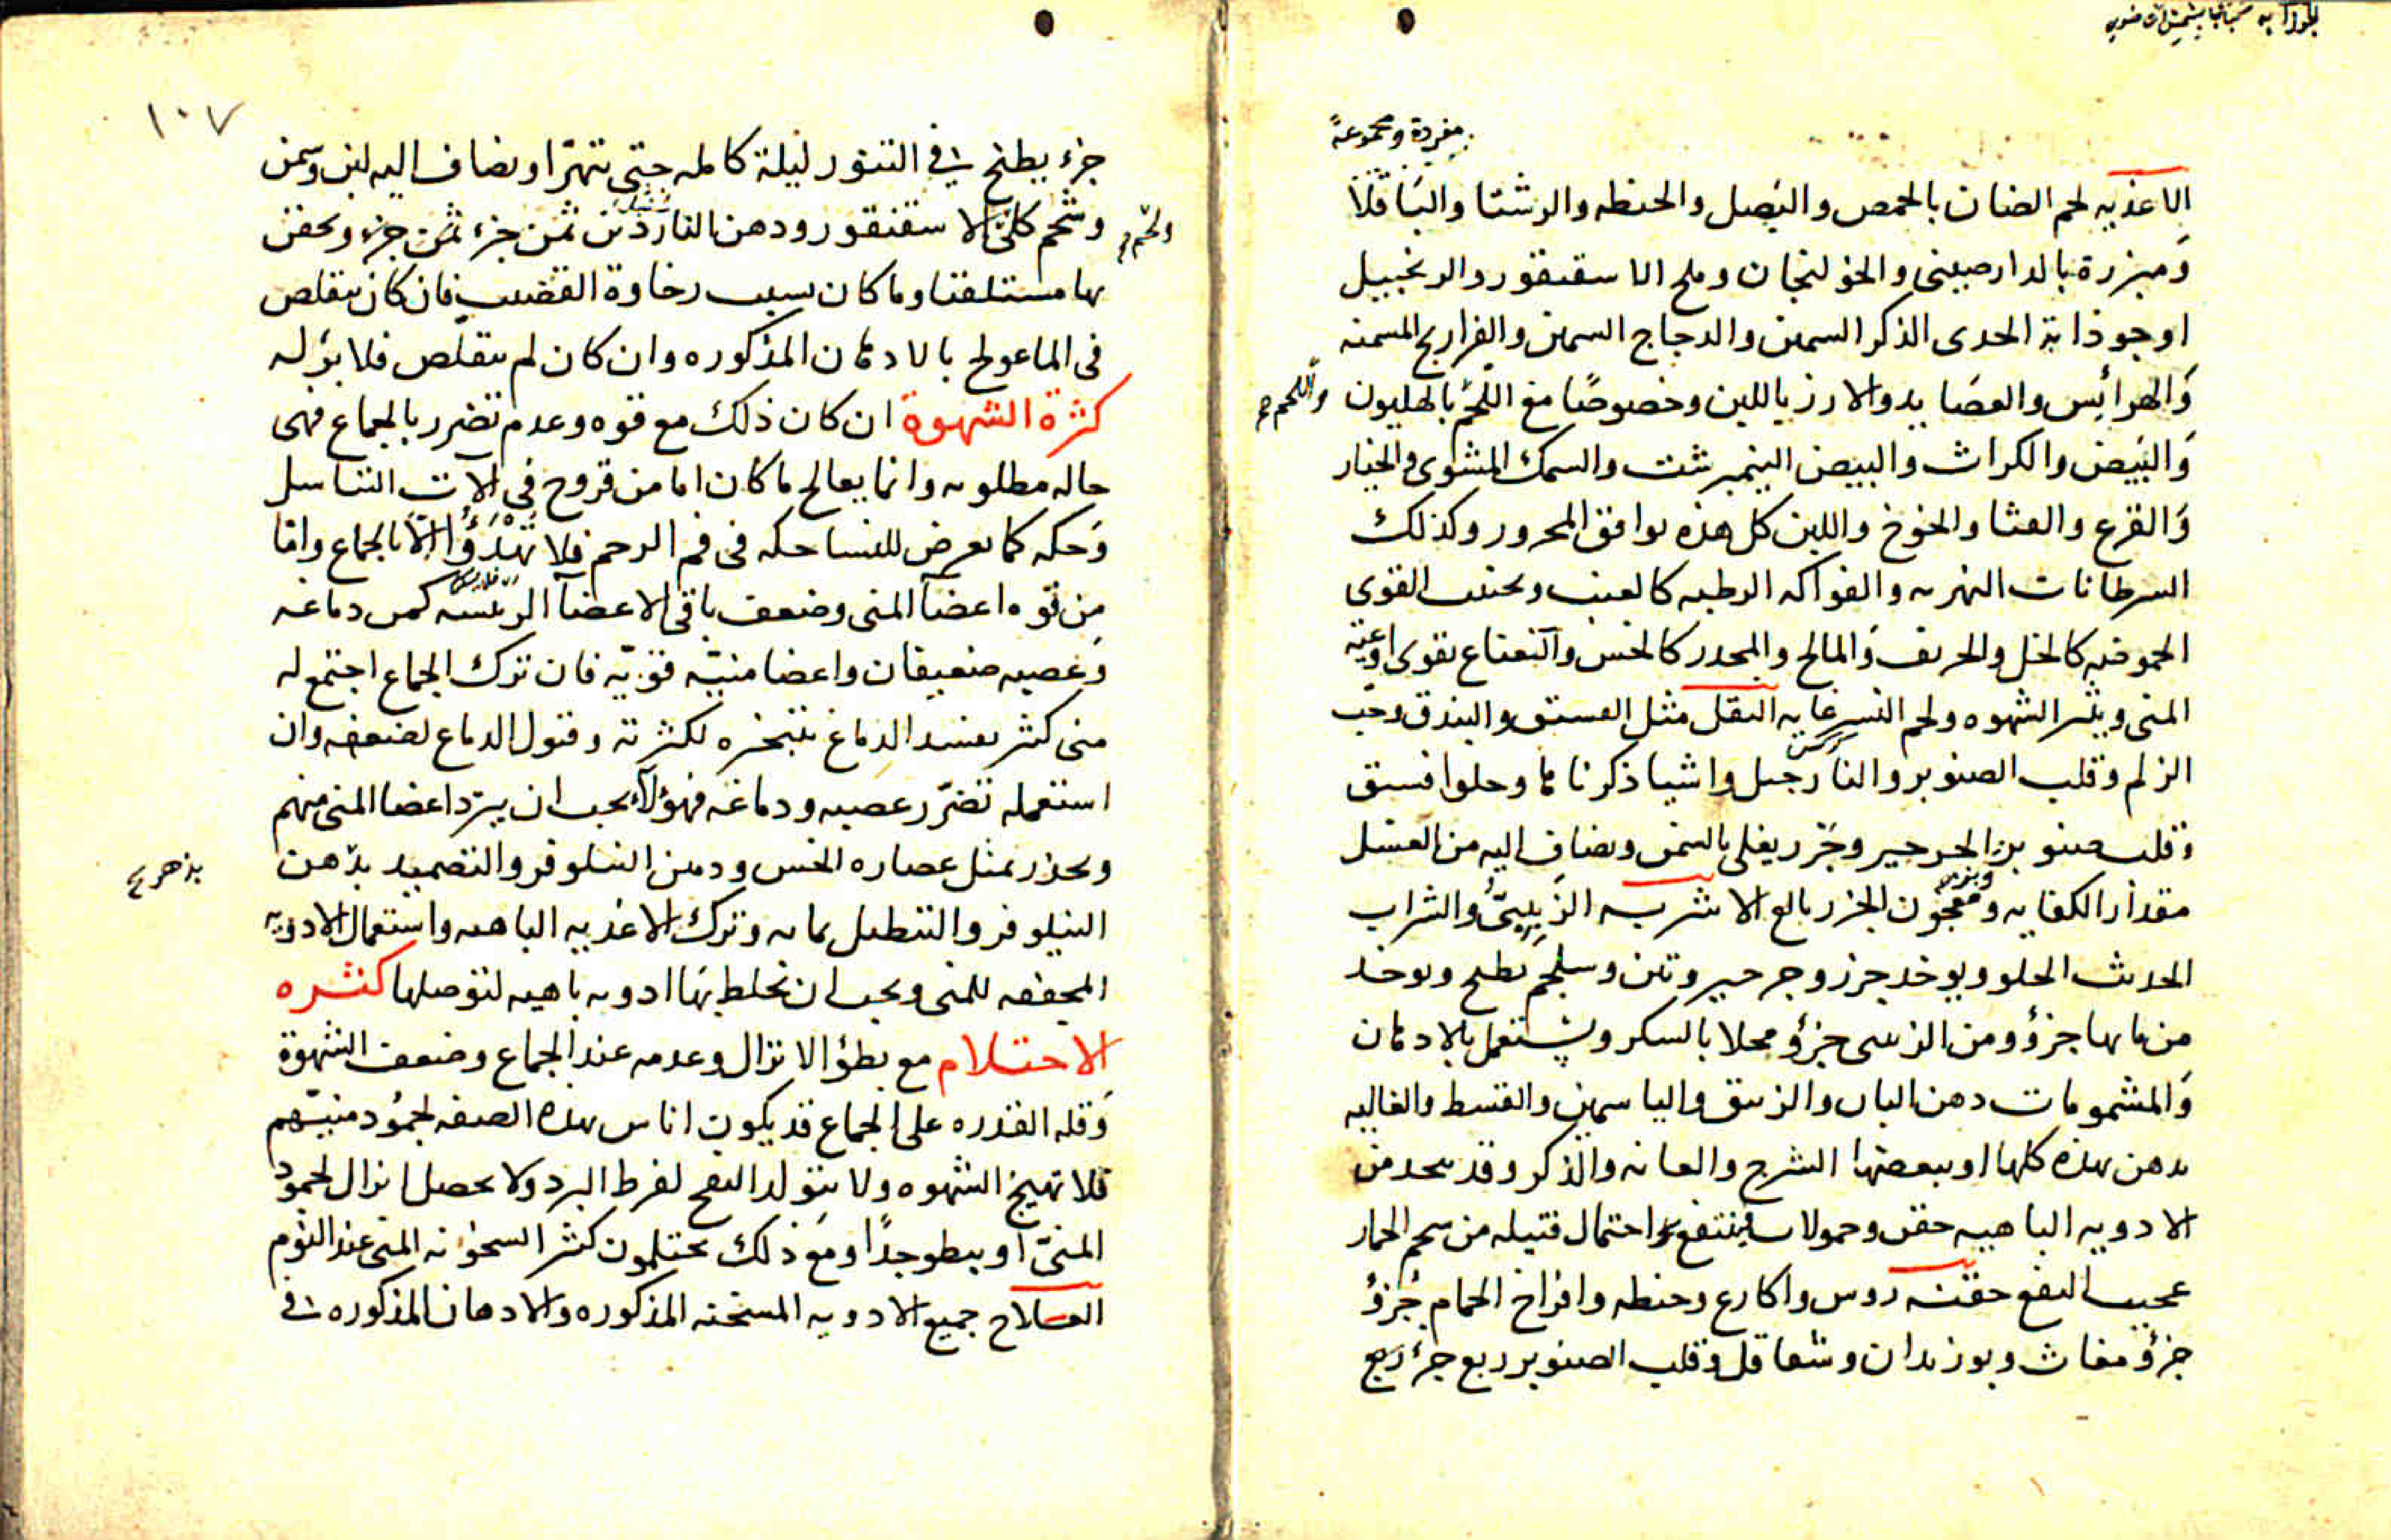 مفردة ومجموعة
الاغذيه لحم الضان بالحمص والبصل والحنطه والرشتا والباقلا
ومبزرة بالدارصينى والخولنجان وملح الاسقنقور والزنجبيل
اوجوذابة الجدى الذكر السمين والدجاج السمين والفراريج المسمنه
والهرائس والعصايد والارز باللبن وخصوصًا مع اللحم بالهليون
واللحم
والبيض والكراث والبيض النيمبرشت والسمك المشوى والخيار
والقرع والقثا والخوخ واللبن كل هذه يوافق المحرور وكذلك
السرطانات النهريه والفواكه الرطبه كالعنب ويجتنب القوى
الحموضه كالخل والحريف والمالح والمخدر كالخس والنعناع يقوى اوعية
المنى ويثير الشهوه ولحم النسر غايه النقل مثل الفستق والبندق وحب
الزلم وقلب الصنوبر والنارجيل واشيا ذكرناها وحلوا فستق
وقلب صنوبر بزر الجرجير وجزر يغلى بالسمن ويضاف اليه من العسل
مقدار الكفايه ومعجون الجزر بالع الاشربه الزبيبىّ والشراب
الحديث الحلو ويوخذ جزر وجرجير وتين وسلجم يطبخ ويوخذ
من مايها جزؤ ومن الزبيبى جزؤ محلا بالسكر ويستعمل بالادهان
والمشمومات دهن البان والزنبق والياسمين والقسط والغاليه
يدهن بهذه كلها او ببعضها الشرج والعانه والذكر وقد يتخذ من
الادويه الباهيه حقن وحمولات فينتفع واحتمال فتيله من شحم الحمار
عجيب النفع حقنه روس واكارع وحنطه وافراخ الحمام جزؤ
جزؤ مغاث وبوزيدان وشقاقل وقلب الصنوبر ربع جزء ربع
١٠٧
جزء يطبخ فى التنور ليلة كامله حتى تتهرّا ويضاف اليه لبن وسمن
وشحم كلى الاسقنقور ودهن الناردين ثمن جزء ثمن جزء ويحقن
بها مستلقيا وما كان بسبب رخاوة القضيب فان كان يتقلص
فى الما عولج بالادهان المذكوره وان كان لم يتقلص فلا برؤ له
كثرة الشهوة ان كان ذلك مع قوه وعدم تضرر بالجماع فهى
حاله مطلوبه وانما يعالج ما كان اما من قروح فى الات التناسل
وحكه كما يعرض للنسا حكه فى فم الرحم فلا تهدؤا الا بالجماع واما
من قوه اعضآ المنى وضعف باقى الاعضآ الرئيسه كمن دماغه
وعصبه ضعيفان واعضا منيّه قويّه فان ترك الجماع اجتمع له
منى كثير يفسد الدماغ بتبخره لكثرته وقبول الدماغ لضعفه وان
استعمله تضرّر عصبه ودماغه فهؤلآء يجب ان يبرّد اعضا المنى منهم
ويخدر بمثل عصاره الخس ودهن النيلوفر والتضميد بدهن
بزهر
النيلوفر والتنطيل بمايه وترك الاغذيه الباهيه واستعمال الادويه
المجففه للمنى ويجب ان يخلط بها ادويه باهيه لتوصلها كثره
الاحتلام مع بطؤ الانزال وعدمه عند الجماع وضعف الشهوة
وقله القدره على الجماع قد يكون اناس بهذه الصفه لجمود منيّهم
فلا تهيج الشهوه ولا يتولد النفخ لفرط البرد ولا يحصل انزال لجمود
المنىّ او يبطو جدًا ومع ذلك يحتلمون كثيرا لسخونه المنى عند النوم
العلاج جميع الادويه المسخنه المذكوره والادهان المذكوره فى